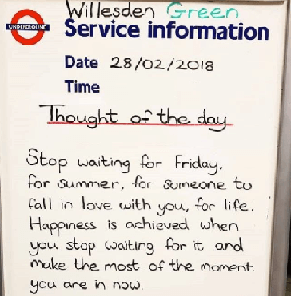 Willesden Green
UNDERGROUND
Service information
Date 28/02/2018
Time
Thought of the day
Stop waiting for Friday,
for summer, for someone to
fall in love with you, for life.
Happiness is achieved when
you stop waiting for it and
make the most of the moment
you are in now.